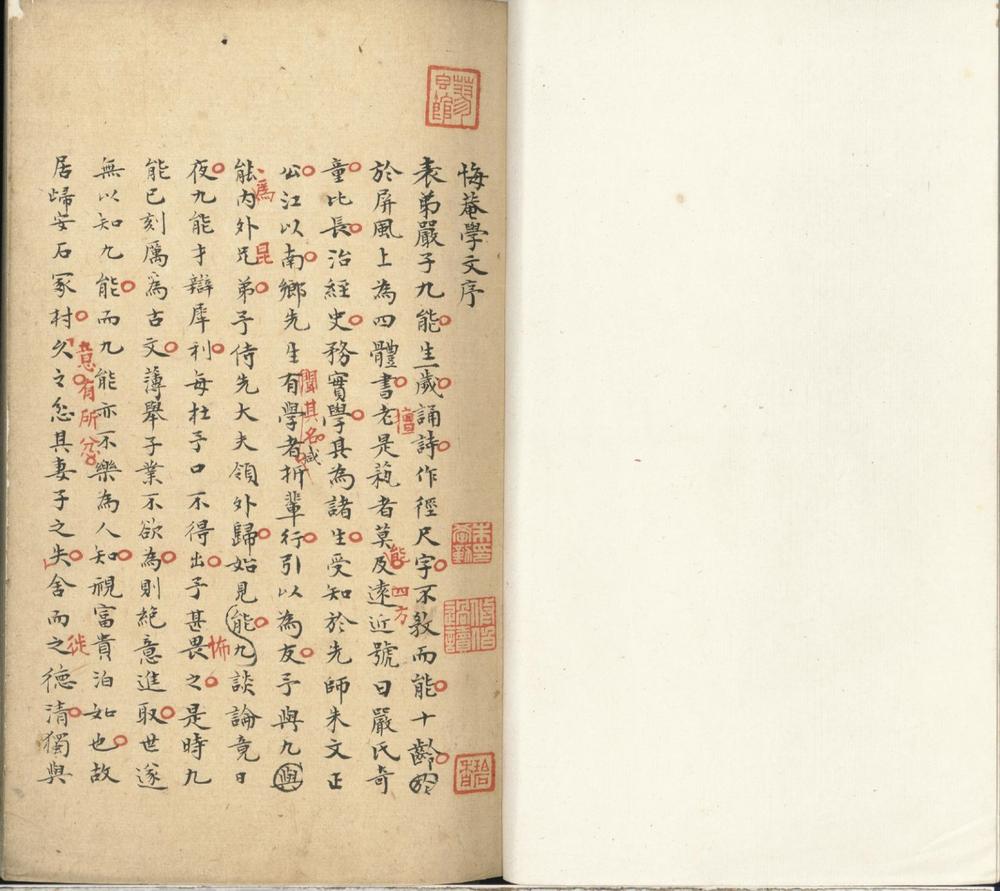 悔菴學文序
表弟嚴子九能生一歲誦詩作徑尺字不教而能十齡於
於屏風上為四體書老是蓺者莫及遠近號曰嚴氏奇
擅
能
四方
童比長治經史務實學其為諸生受知於先師朱文正
公江以南鄉先生有學者折輩行引以為友予與九與
聞其名
咸
能內外兄弟予侍先大夫領外歸始見能九談論竟日
為
昆
夜九能才辯犀利每杜予口不得出予甚畏之是時九
怖
能已刻厲為古文薄舉子業不欲為則絕意進取世遂
無以知九能而九能亦不樂為人知視富貴泊如也故
意有所忿
居歸安石冢村久之忽其妻子之失舍而之德清獨與
徙